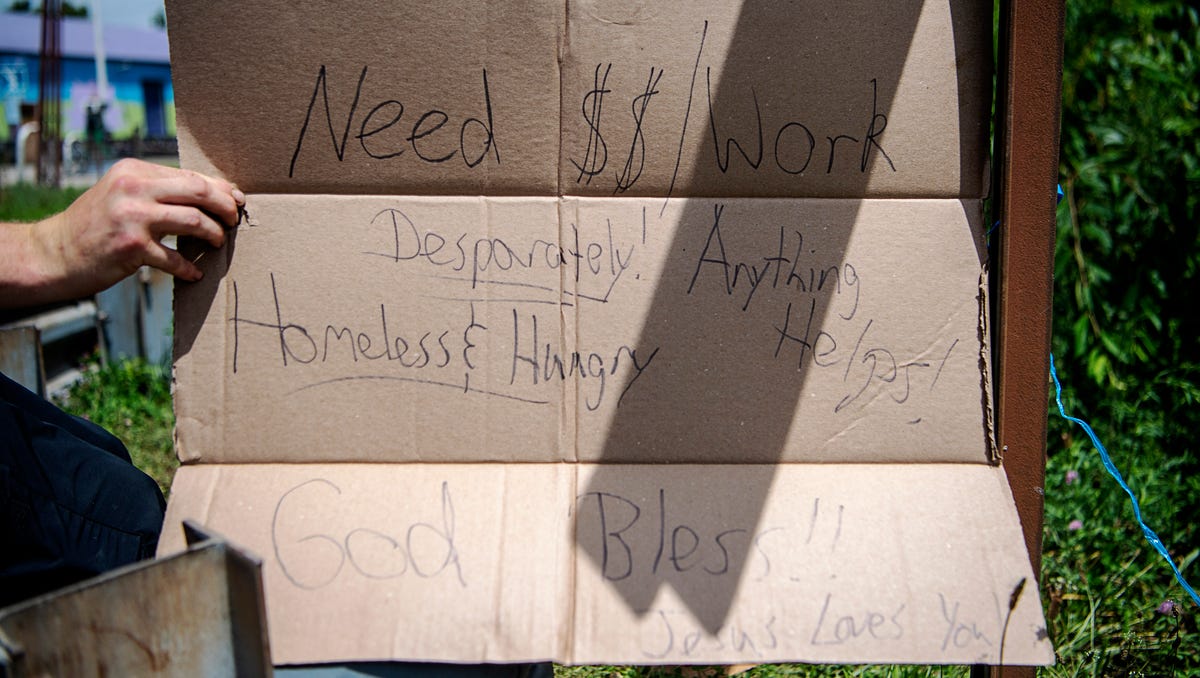 Need $$/Work
Desparately! Anything
Homeless & Hungry Helps!
God Bless!!
Jesus Loves You!